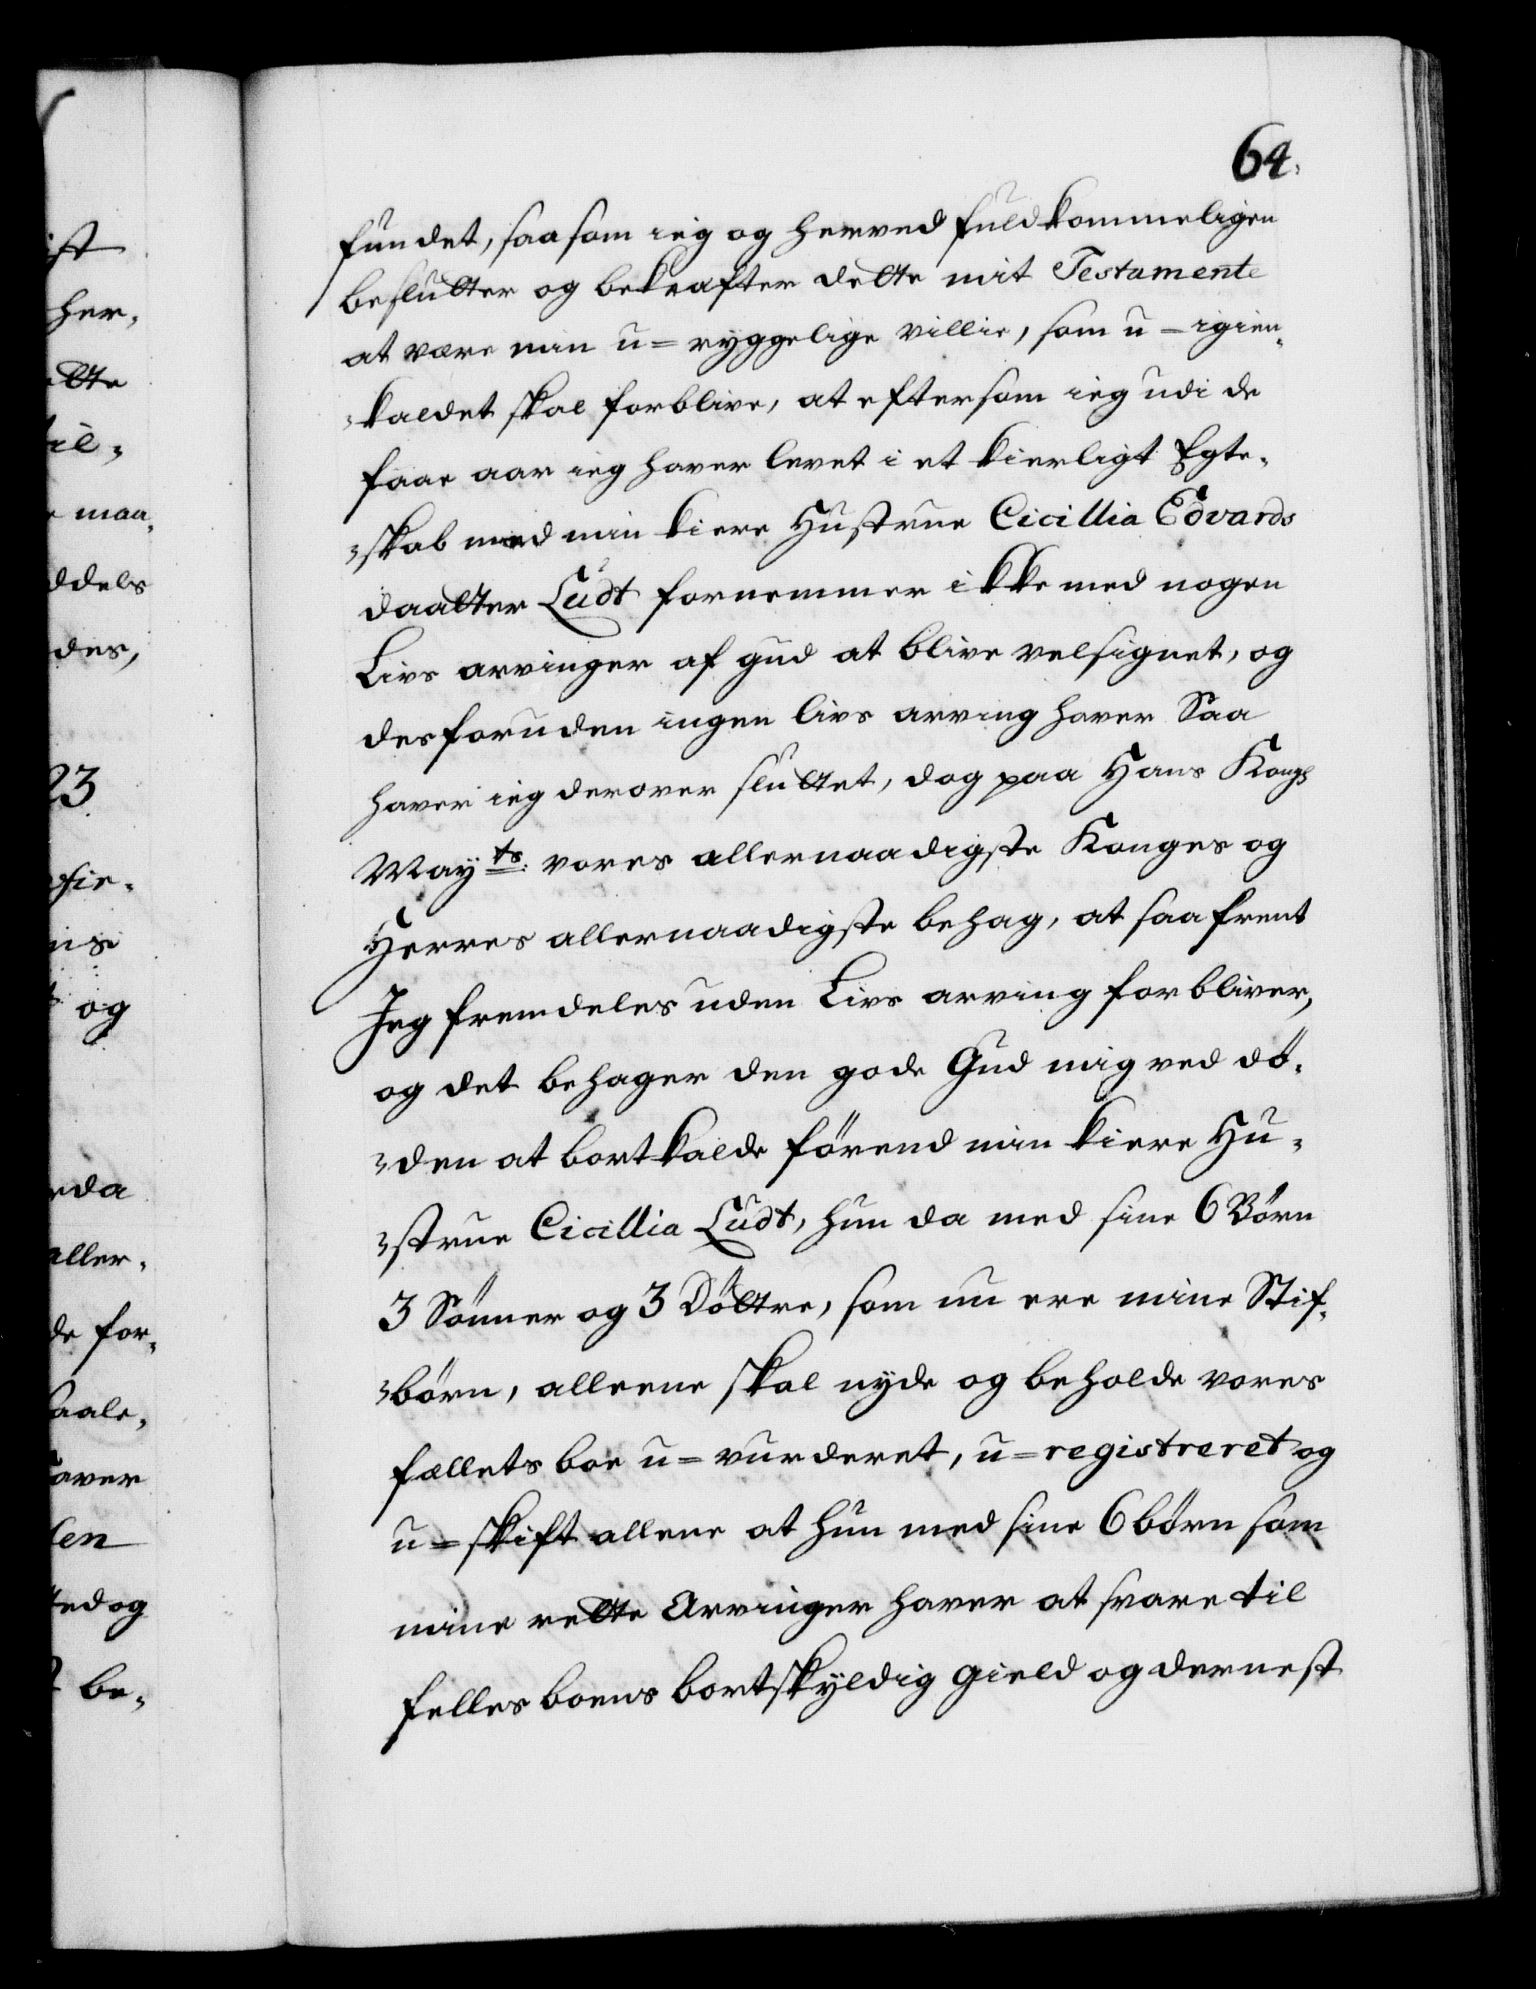 64.
fundet, saasom ieg og herved fuldkommeligen
beslutter og bekrafter dette mit Testamente
at være min u=ryggelige villie, som u=igien-
kaldet skal forblive, at eftersom ieg udi de
faae aar ieg haver levet i et kierligt Egte-
skab med min kiere Hustrue Cicillia Edvards
daatter Ludt fornemmer ikke med nogen
Livs arvinger af gud at blive velsignet, og
desforuden ingen livs arving haver Saa
haver ieg derover sluttet, dog paa Hans Kongl
Mayts. vores allernaadigste Konges og
Herres allernaadigste behag, at saafremt
Jeg fremdeles uden Livs arving forbliver,
og det behager den gode Gud mig ved dö-
den at bortkalde förend min kiere Hu-
strue Cicillia Ludt, hun da med sine 6 Börn
3 Sönner og 3 Döttre, som nu ere mine Stif-
börn, alleene skal nyde og beholde vores
fællets boe u=vurderet, u=registreret og
u=skift allene at hun med sine 6 börn som
mine rette Arvinger haver at svare til
felles boens bortskyldig gield og dernest
ist
her,
ette
til,
maa,
ddels
des,
23
og
rda
aller,
de for,
saale,
aver
len
ted og
be,